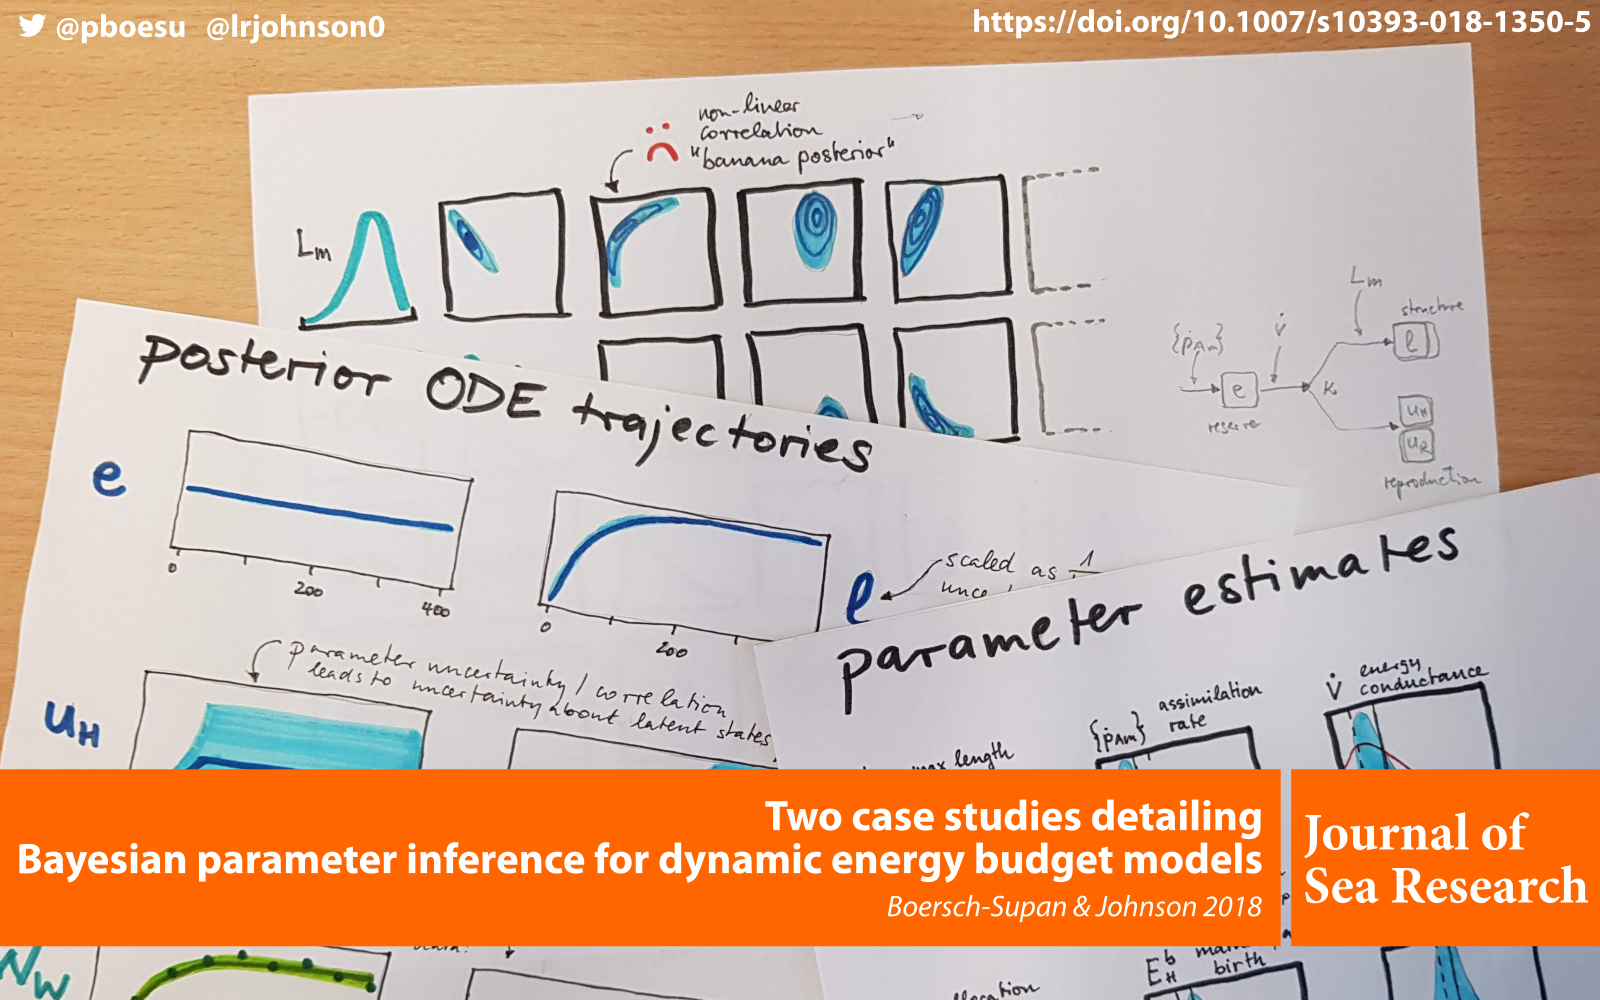 @pboesu @lrjohnson0
https://doi.org/10.1007/s10393-018-1350-5
non-linear
correlation
"banana posterior"
Lm
Lm
structure
{ṗAm}
v̇
l
e
κ
reserve
uH
uR
reproduction
posterior ODE trajectories
e
0
200
400
0
200
l
scaled as 1
parameter uncertainty / correlation
leads to uncertainty about latent states
uH
parameter estimates
max length
{ṗAm} assimilation
rate
v̇ energy
conductance
Two case studies detailing
Bayesian parameter inference for dynamic energy budget models
Boersch-Supan & Johnson 2018
Journal of
Sea Research
NW
EHb
birth